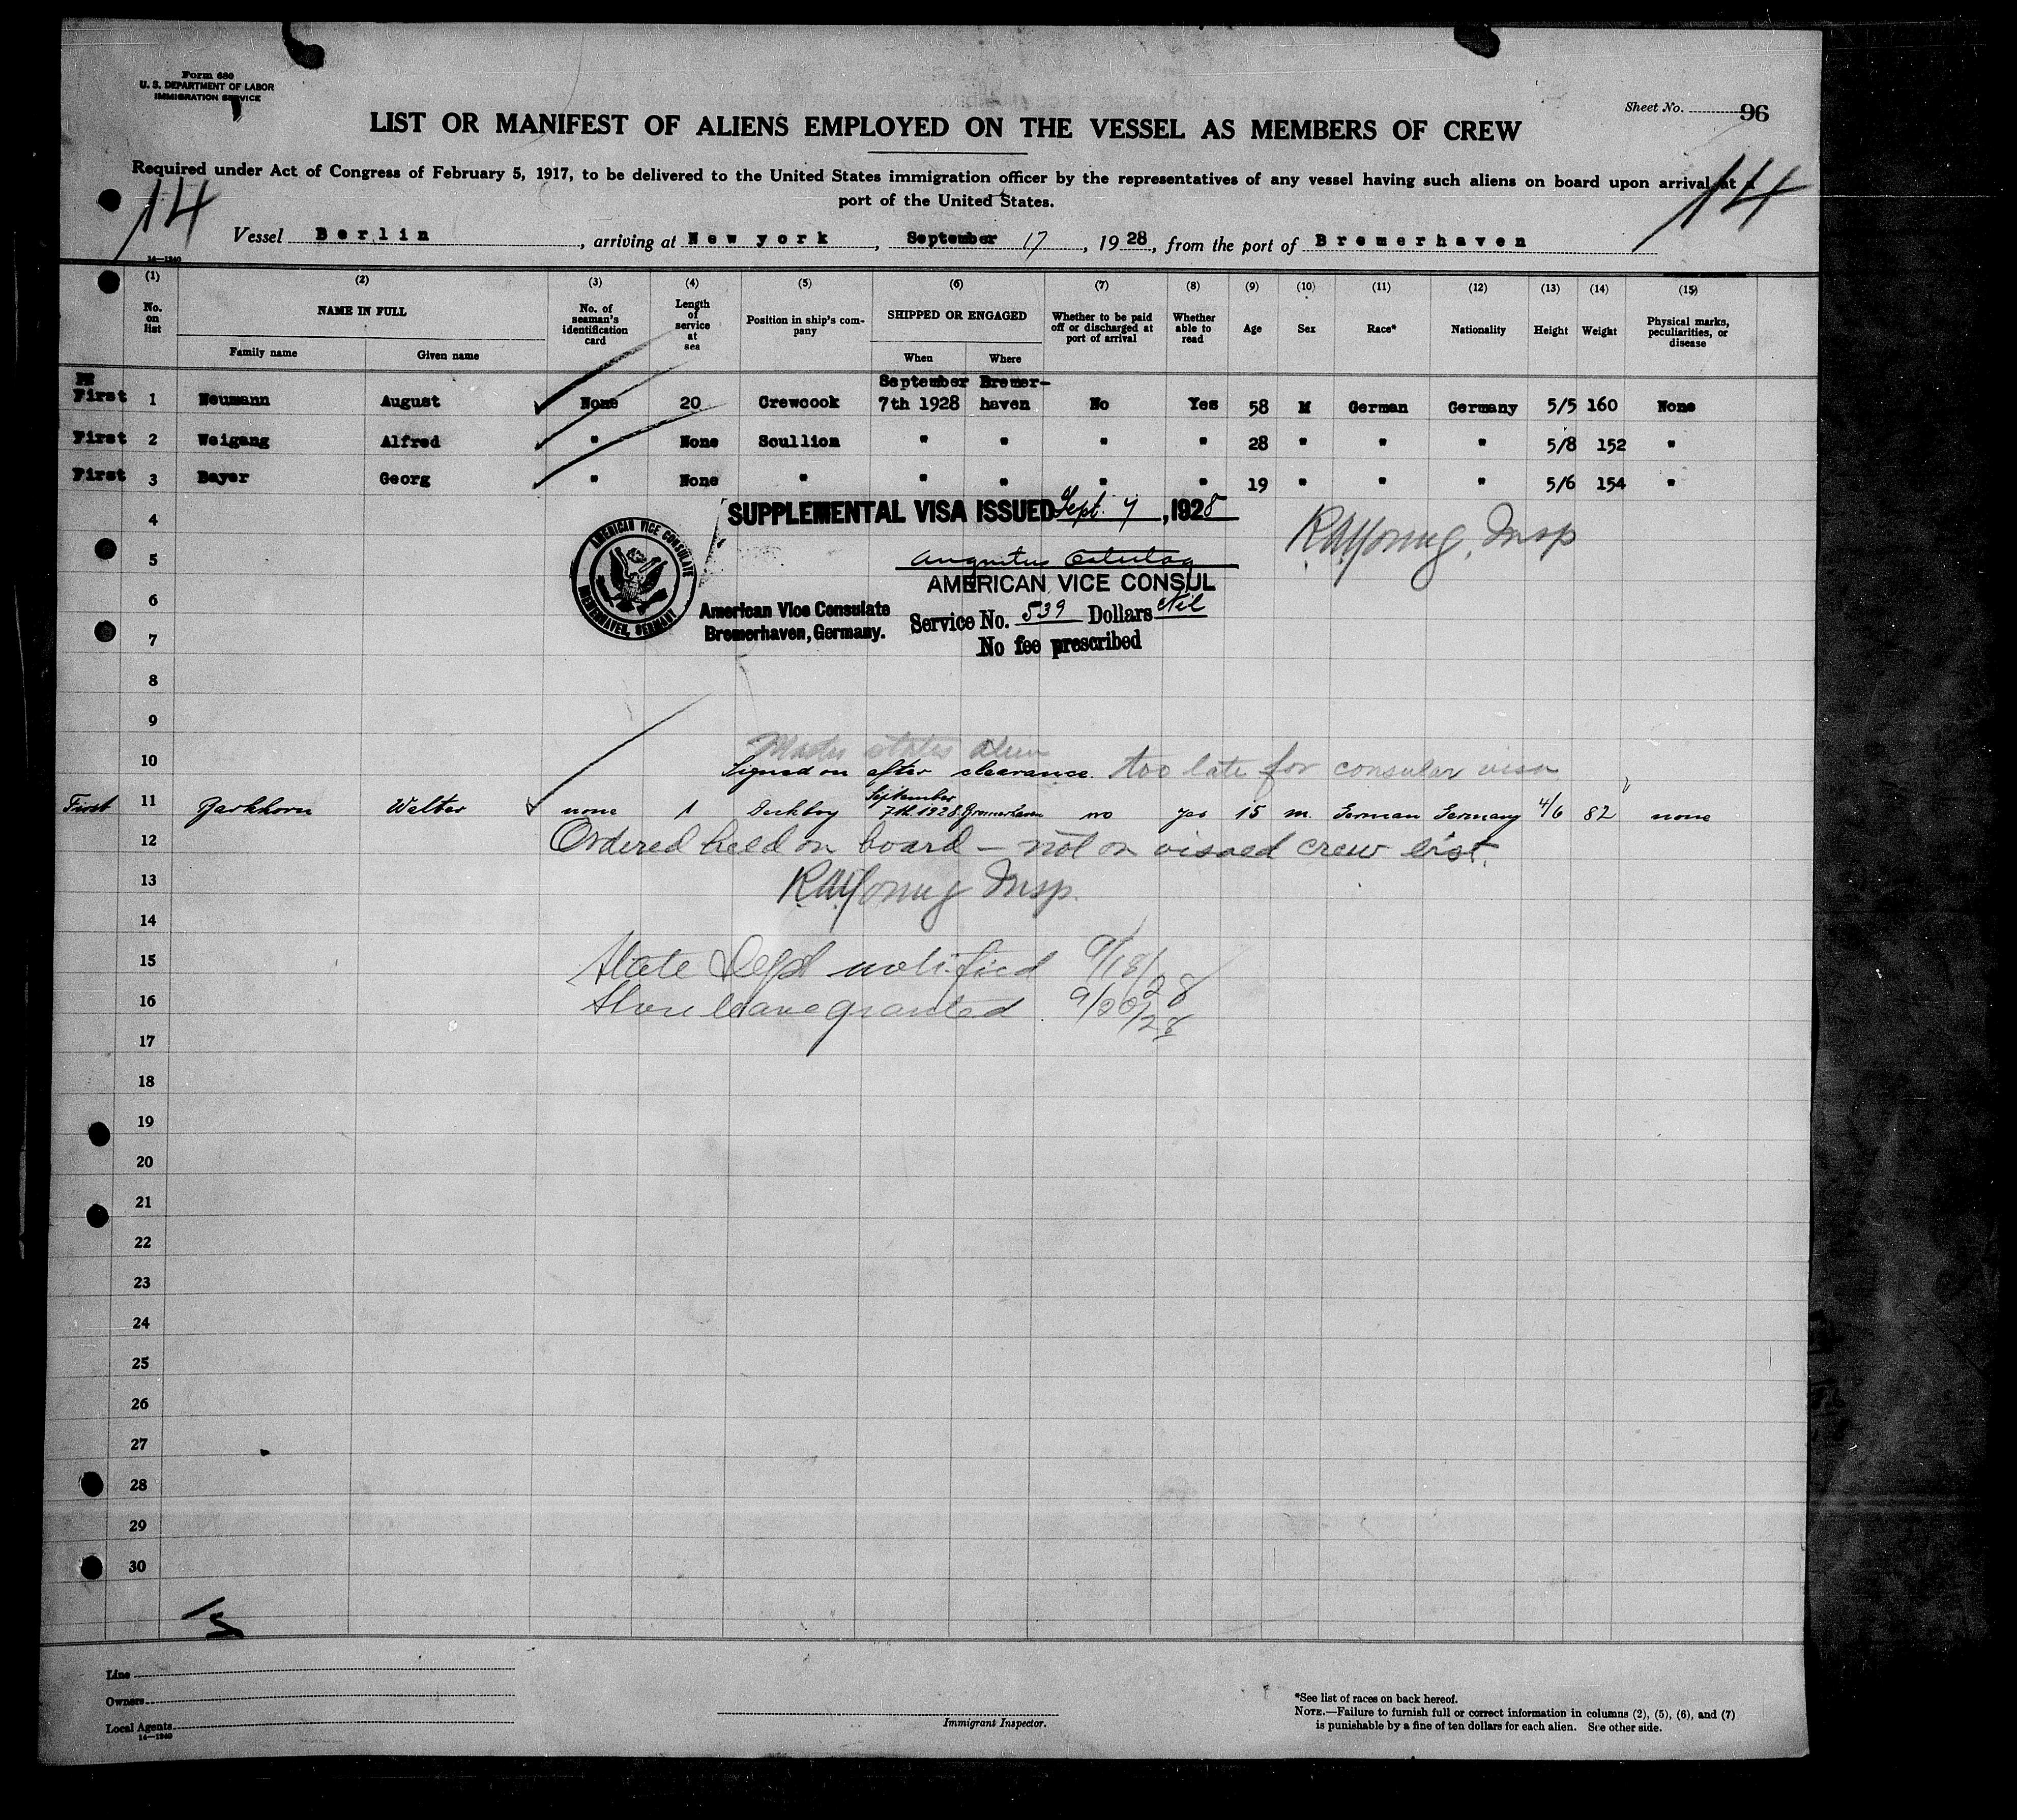 Form 680
U. S. DEPARTMENT OF LABOR
IMMIGRATION SERVICE
Sheet No. 96
LIST OR MANIFEST OF ALIENS EMPLOYED ON THE VESSEL AS MEMBERS OF CREW
Required under Act of Congress of February 5, 1917, to be delivered to the United States immigration officer by the representatives of any vessel having such aliens on board upon arrival at a
port of the United States.
14 14
Vessel Berlin, arriving at New york, September 17, 1928, from the port of Bremerhaven
14—1240
(1) (2) (3) (4) (5) (6) (7) (8) (9) (10) (11) (12) (13) (14) (15)
No. on list NAME IN FULL No. of seaman's identification card Length of service at sea Position in ship's company SHIPPED OR ENGAGED Whether to be paid off or discharged at port of arrival Whether able to read Age Sex Race* Nationality Height Weight Physical marks, peculiarities, or disease
Family name Given name When Where
September Bremer-
First 1 Neumann August None 20 Crewcook 7th 1928 haven No Yes 58 M German Germany 5/5 160 None
First 2 Weigang Alfred " None Scullion " " " " 28 " " " 5/8 152 "
First 3 Bayer Georg " None " " " " " 19 " " " 5/6 154 "
SUPPLEMENTAL VISA ISSUED Sept. 7, 1928
4
R.A. Young, Insp
AMERICAN VICE CONSULATE
BREMERHAVEN, GERMANY
5
AMERICAN VICE CONSUL
6
American Vice Consulate
Bremerhaven, Germany.
Service No. 539 Dollars Nil
7
No fee prescribed
8
9
10
Master states alien
Signed on after clearance. too late for consular visa
September
First 11 Barkhorn Walter none 1 Deckboy 7th 1928 Bremerhaven no yes 15 m. German Germany 4/6 82 none
12 Ordered held on board – not on visaed crew list.
13 R.A. Young Insp.
14
15 State Dept notified 9/18/28
16 Shore leave granted. 9/20/28
17
18
19
20
21
22
23
24
25
26
27
28
29
30
15
Line
Owners
Local Agents
14—1240
Immigrant Inspector.
*See list of races on back hereof.
NOTE.—Failure to furnish full or correct information in columns (2), (5), (6), and (7)
is punishable by a fine of ten dollars for each alien. See other side.